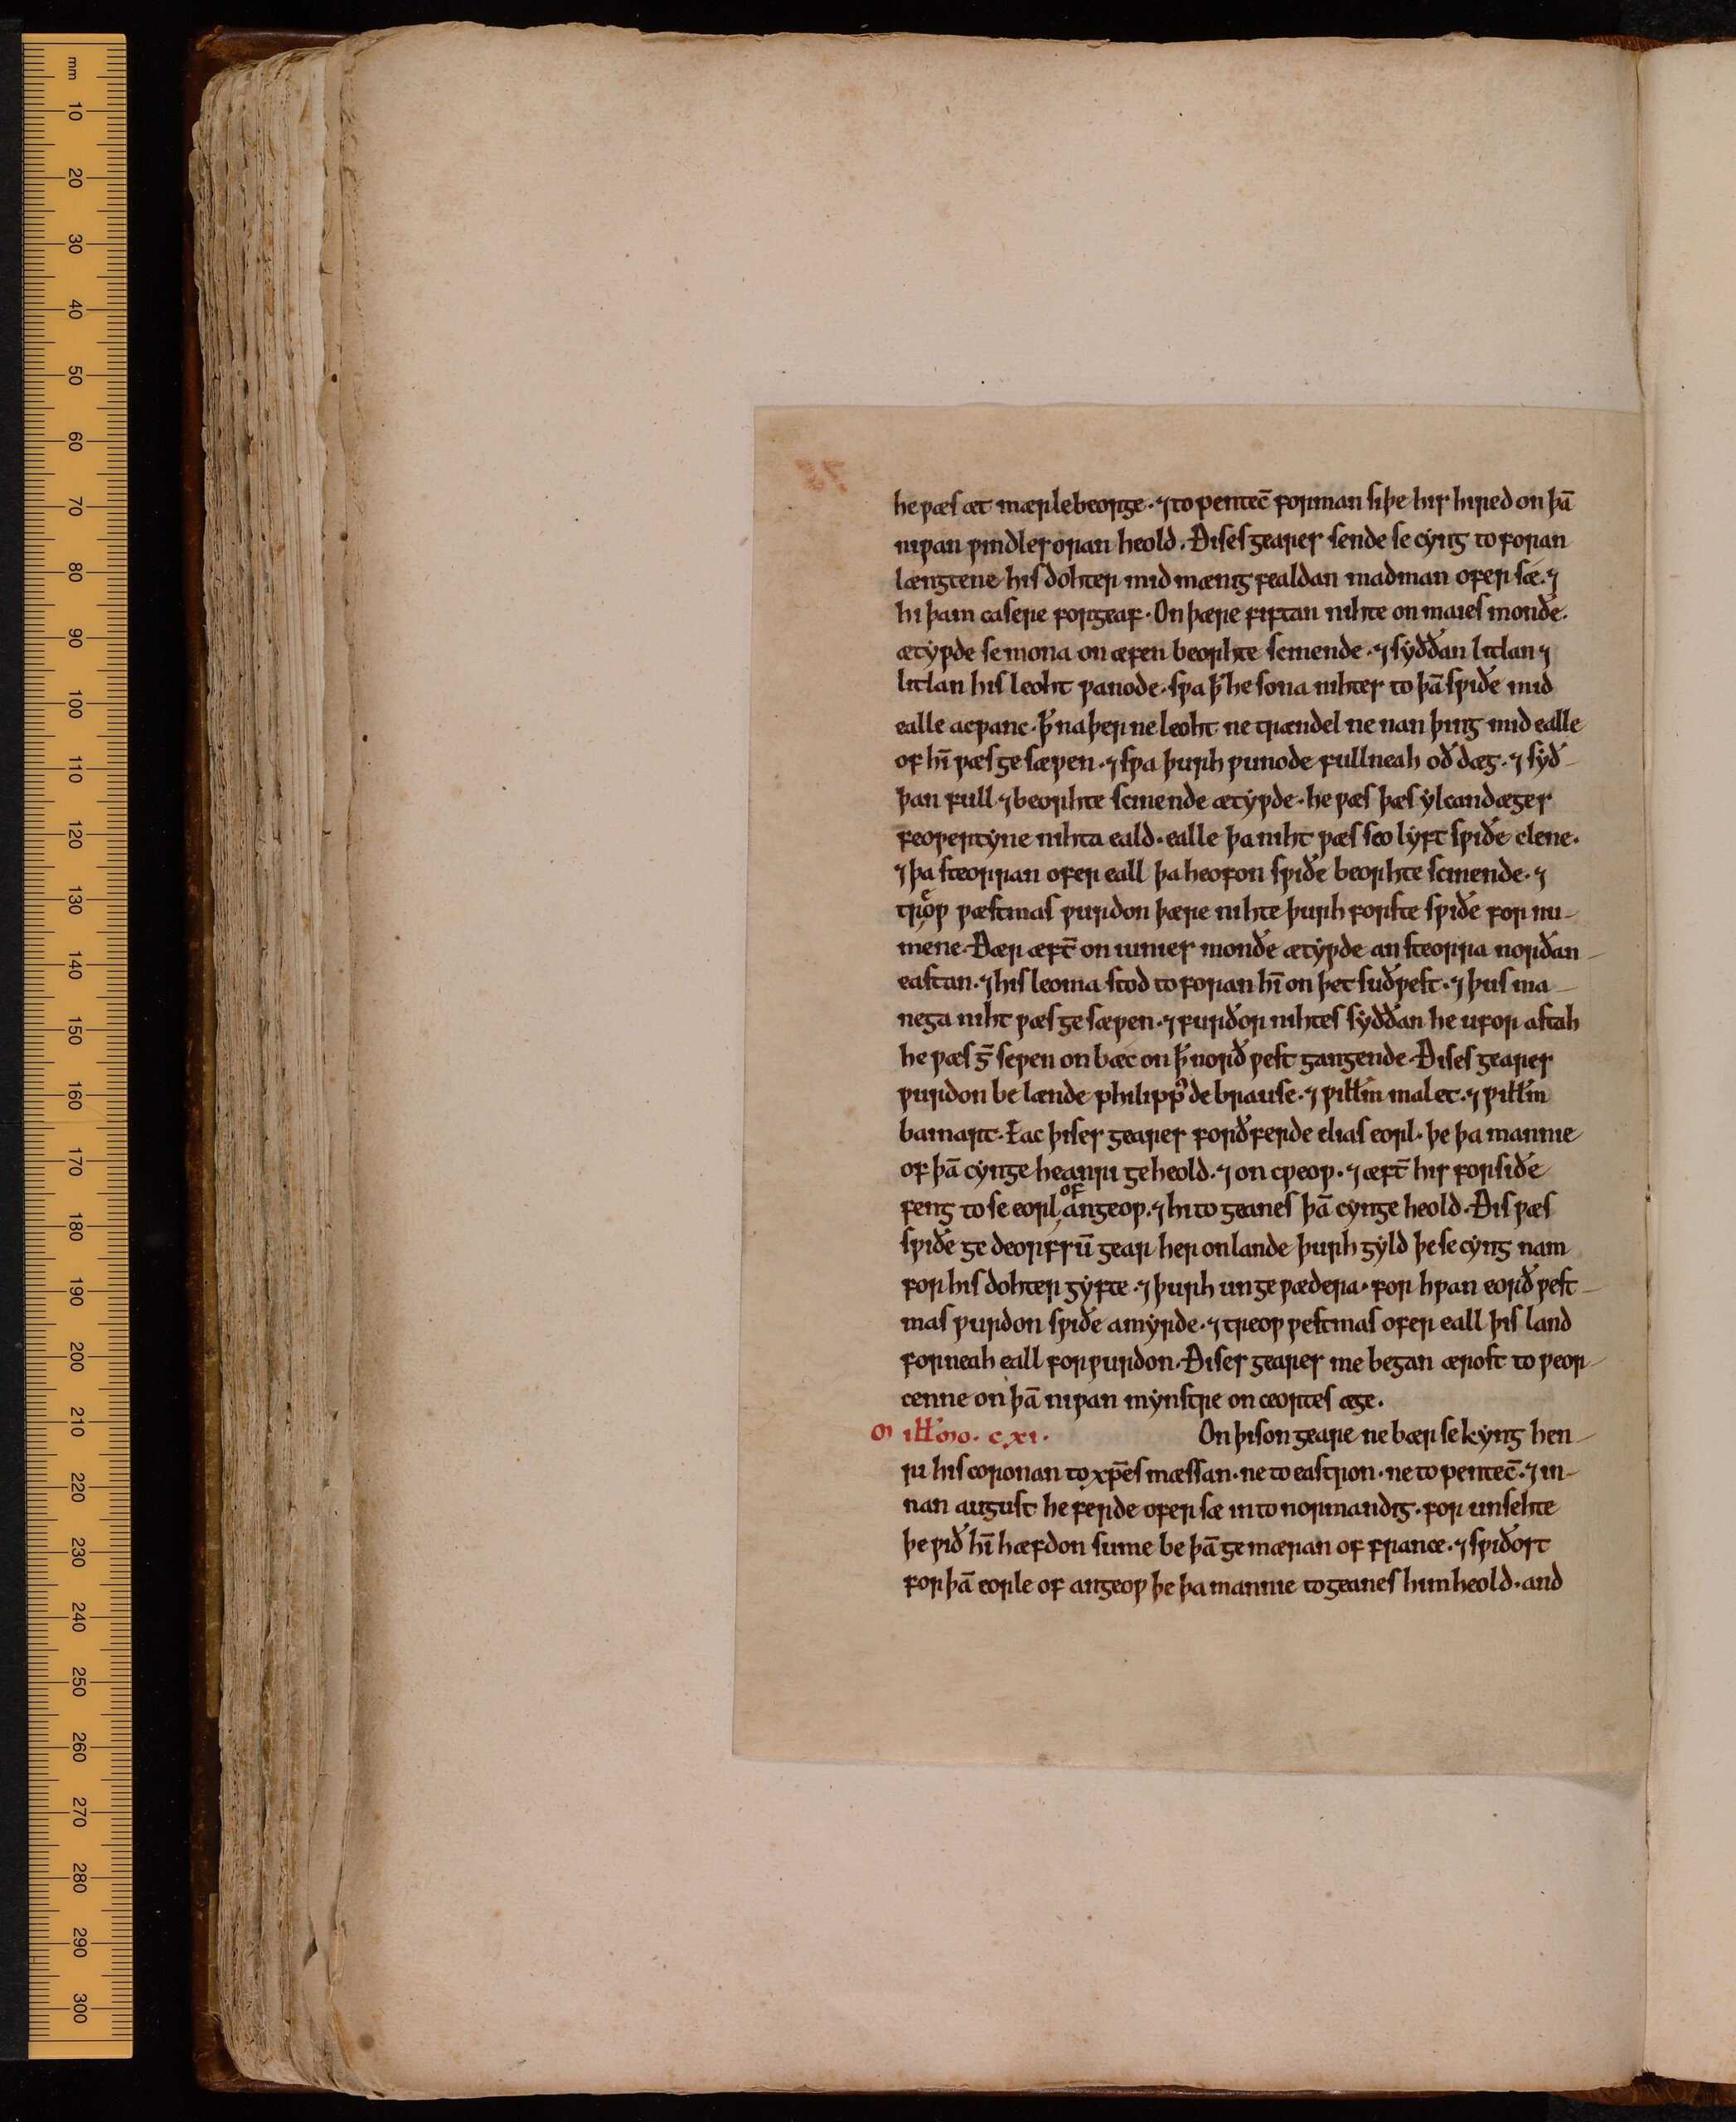 he ƿæs æt mærlebeorge. ⁊ to pentec̄ forman siþe his hired on þā
niƿan ƿindlesoran heold. Ðises geares sende se cyng toforan
længtene his dohter mid mænigfealdan madman ofer sæ. ⁊
hi þam casere forgeaf. On þære fiftan nihte on maies monðe.
ætyƿde se mona on æfen beorhte scinende. ⁊ syððan litlan ⁊
litlan his leoht ƿanode. sƿa ꝥ he sona nihtes to þā sƿiðe mid
ealle acƿanc. ꝥ naþer ne leoht ne trændel ne nan þing mid ealle
of hī ƿæs ge sæƿen. ⁊ sƿa þurh ƿunode fullneah oð dæg. ⁊ syð-
þan full ⁊ beorhte scinende ætyƿde. he ƿæs þæs ylcan dæges
feoƿertyne nihta eald. ealle þa niht ƿæs seo lyft sƿiðe clene.
⁊ þa steorran ofer eall þa heofon sƿiðe beorhte scinende. ⁊
treoƿ ƿæstmas ƿurdon þære nihte þurh forste sƿiðe for nu-
mene. Ðær æft̄ on iunies monðe ætyƿde an steorra norðan
eastan. ⁊ his leoma stod toforan hī on þet suðƿest. ⁊ þus ma-
nega niht ƿæs ge sæƿen. ⁊ furðor nihtes syððan he ufor astah
he ƿæs ḡ seƿen on bæc on ꝥ norð ƿest gangende. Ðises geares
ƿurdon be lænde philipp̓ de brause. ⁊ ƿiłłm malet. ⁊ ƿiłłm
bainart. Eac þises geares forðferde elias eorl. þe þa manine
of þā cynge heanri geheold. ⁊ on cƿeoƿ. ⁊ æft̄ his forsiðe
feng to se eorl of angeoƿ. ⁊ hi togeanes þā cynge heold. Ðis ƿæs
sƿiðe ge deorfsū gear her on lande þurh gyld þe se cyng nam
for his dohter gyfte. ⁊ þurh unge ƿædera. for hƿan eorð ƿest-
mas ƿurdon sƿiðe amyrde. ⁊ treoƿ ƿestmas ofer eall þis land
forneah eall forƿurdon. Ðises geares me began ærost to ƿeor-
cenne on þā niƿan mynstre on ceortes æge.
Miłłmo. c. xi. On þison geare ne bær se kyng hen-
ri his coronan to xp̄es mæssan. ne to eastron. ne to pentec̄. ⁊ in-
nan august he ferde ofer sæ into normandig. for unsehte
þe ƿið hī hæfdon sume be þā gemæran of france. ⁊ sƿiðost
for þā eorle of angeoƿ þe þa manine togeanes him heold. and